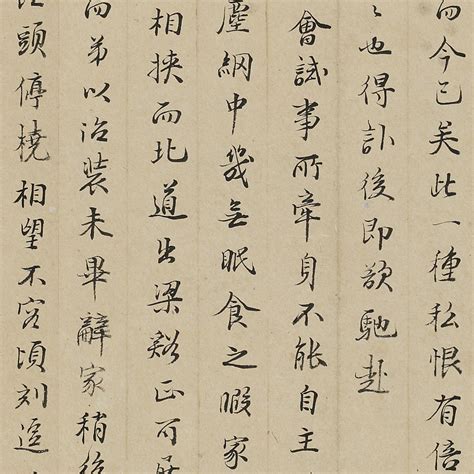 而今已矣此一種私恨有倍
也得訃後即欲馳赴
會試事所牽身不能自主
塵網中幾無眠食之暇家
相挾而北道出梁谿正可
而弟以治裝未畢辭家稍後
頭停橈相望不容頃刻逗